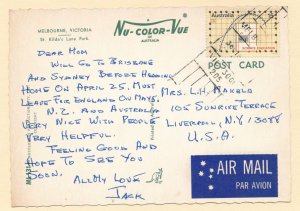 MELBOURNE, VICTORIA
St. Kilda's Luna Park.
Nu-COLOR-VUE
OF AUSTRALIA
Australia
POST CARD
DEAR MOM
WILL GO TO BRISBANE
AND SYDNEY BEFORE HEADING
HOME ON APRIL 25. MUST
LEAVE FOR ENGLAND ON MAY 6.
N.Z. AND AUSTRALIA
VERY NICE WITH PEOPLE
VERY HELPFUL.
FEELING GOOD AND
HOPE TO SEE YOU
SOON.
ALL MY LOVE
JACK
MRS. L.H. MAKELA
105 SUNRISE TERRACE
LIVERPOOL, N.Y. 13088
U.S.A.
AIR MAIL
PAR AVION